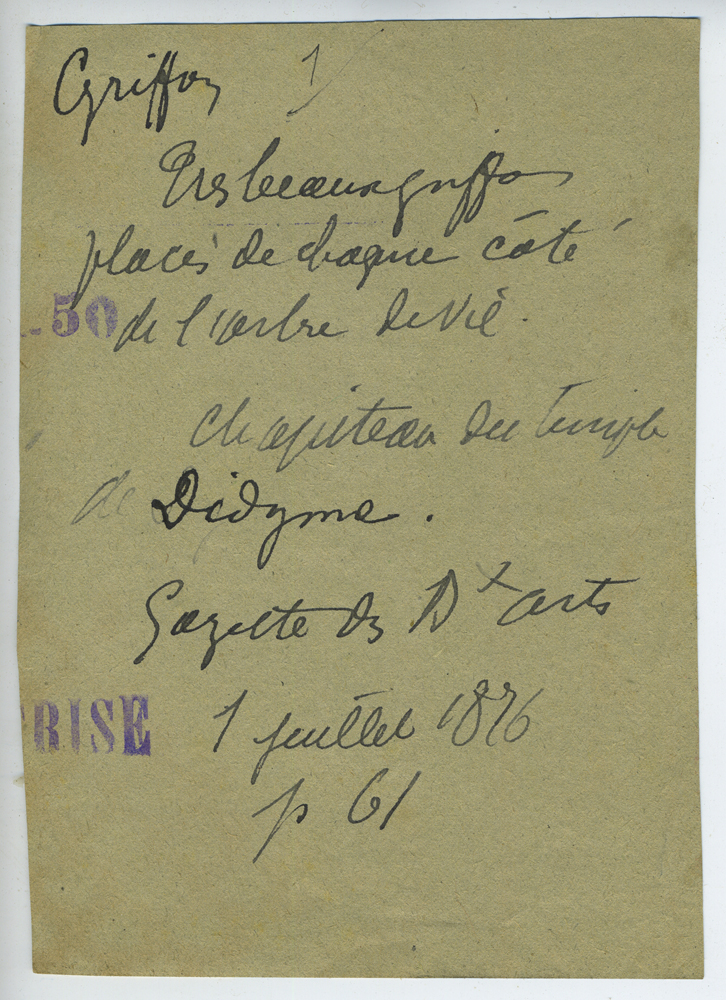 Griffon 1/
Très beaux griffons
placés de chaque côté
.50
de l'arbre de vie.
chapiteau du temple
de Didyme.
Gazette des Bx arts
RISE
1 juillet 1876
p 61